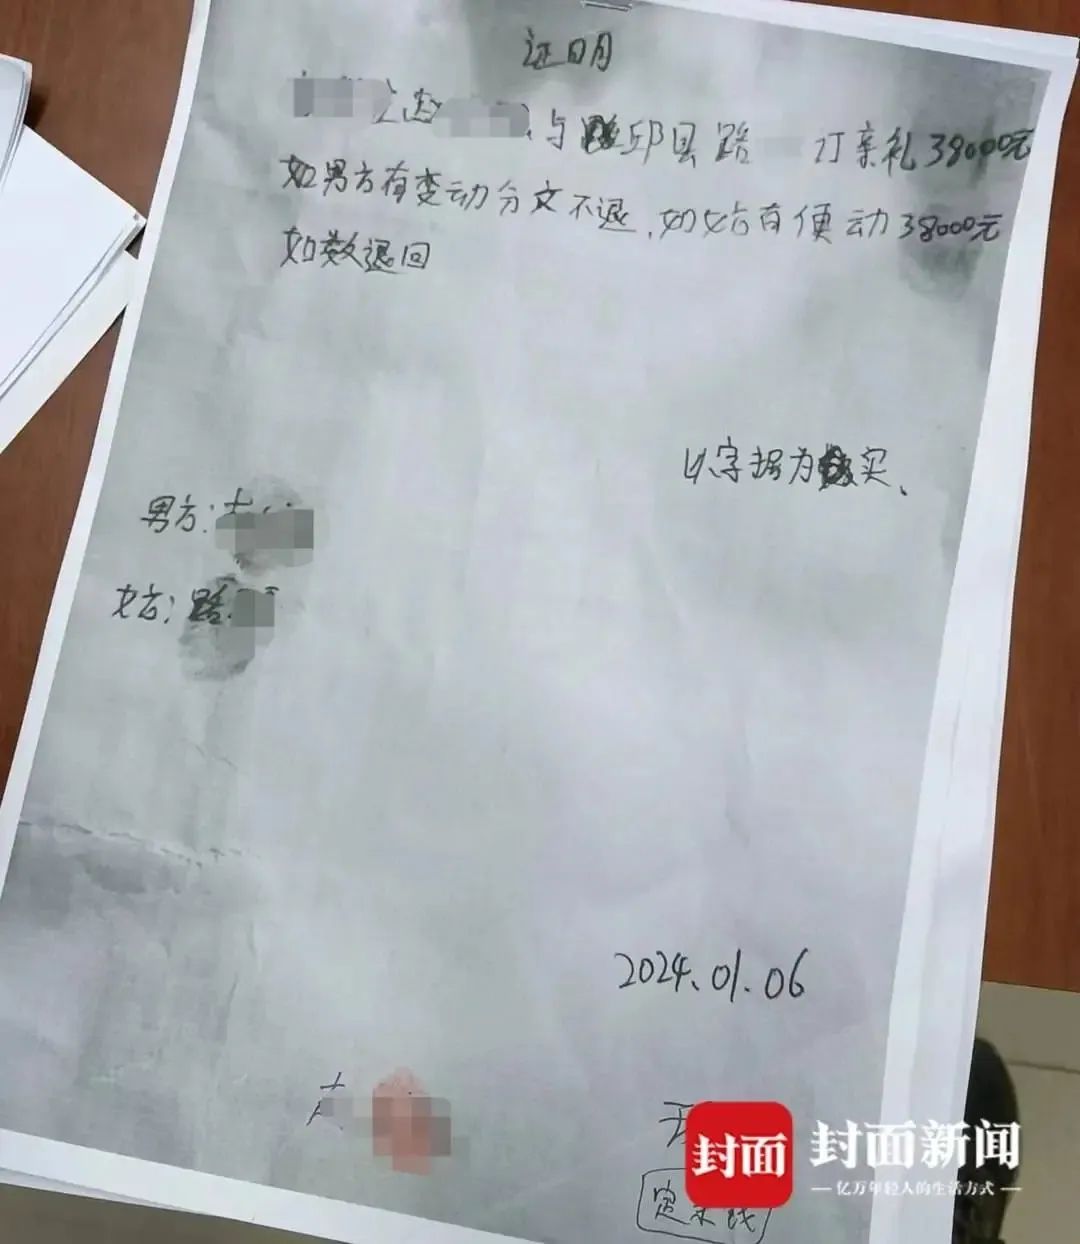 证明
与邱县路 订亲礼38000元
如男方有变动分文不退，如女方有便动38000元
如数退回
以字据为实、
男方：
女方：路
2024.01.06
封面
封面新闻
—亿万年轻人的生活方式—